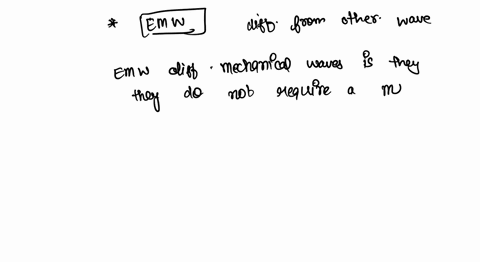 * EMW diff. from other wave
EMW diff. mechanical waves is they
they do not require a m